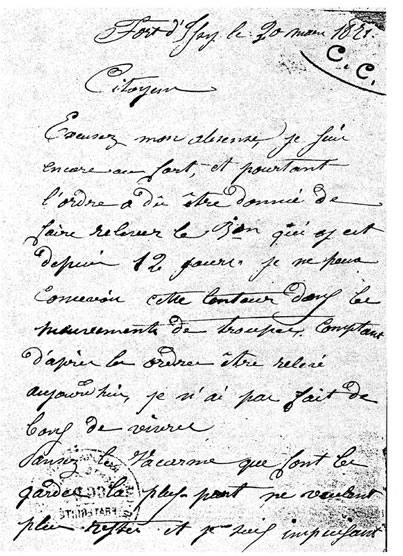 Fort d'Issy le 20 mars 1871.
C. C.
Citoyen
Excusez mon absense, je suis
encore au fort, et pourtant
l'ordre a dû être donné de
faire relever le Bon qui y est
depuis 12 jours. je ne peux
concevoir cette lenteur dans les
mouvements de troupes, Comptant
d'après les ordres être relevé
aujourd'hui, je n'ai pas fait de
bons de vivres
Pensez le vacarme que font les
gardes la plus part ne veulent
plus rester et je suis impuissant